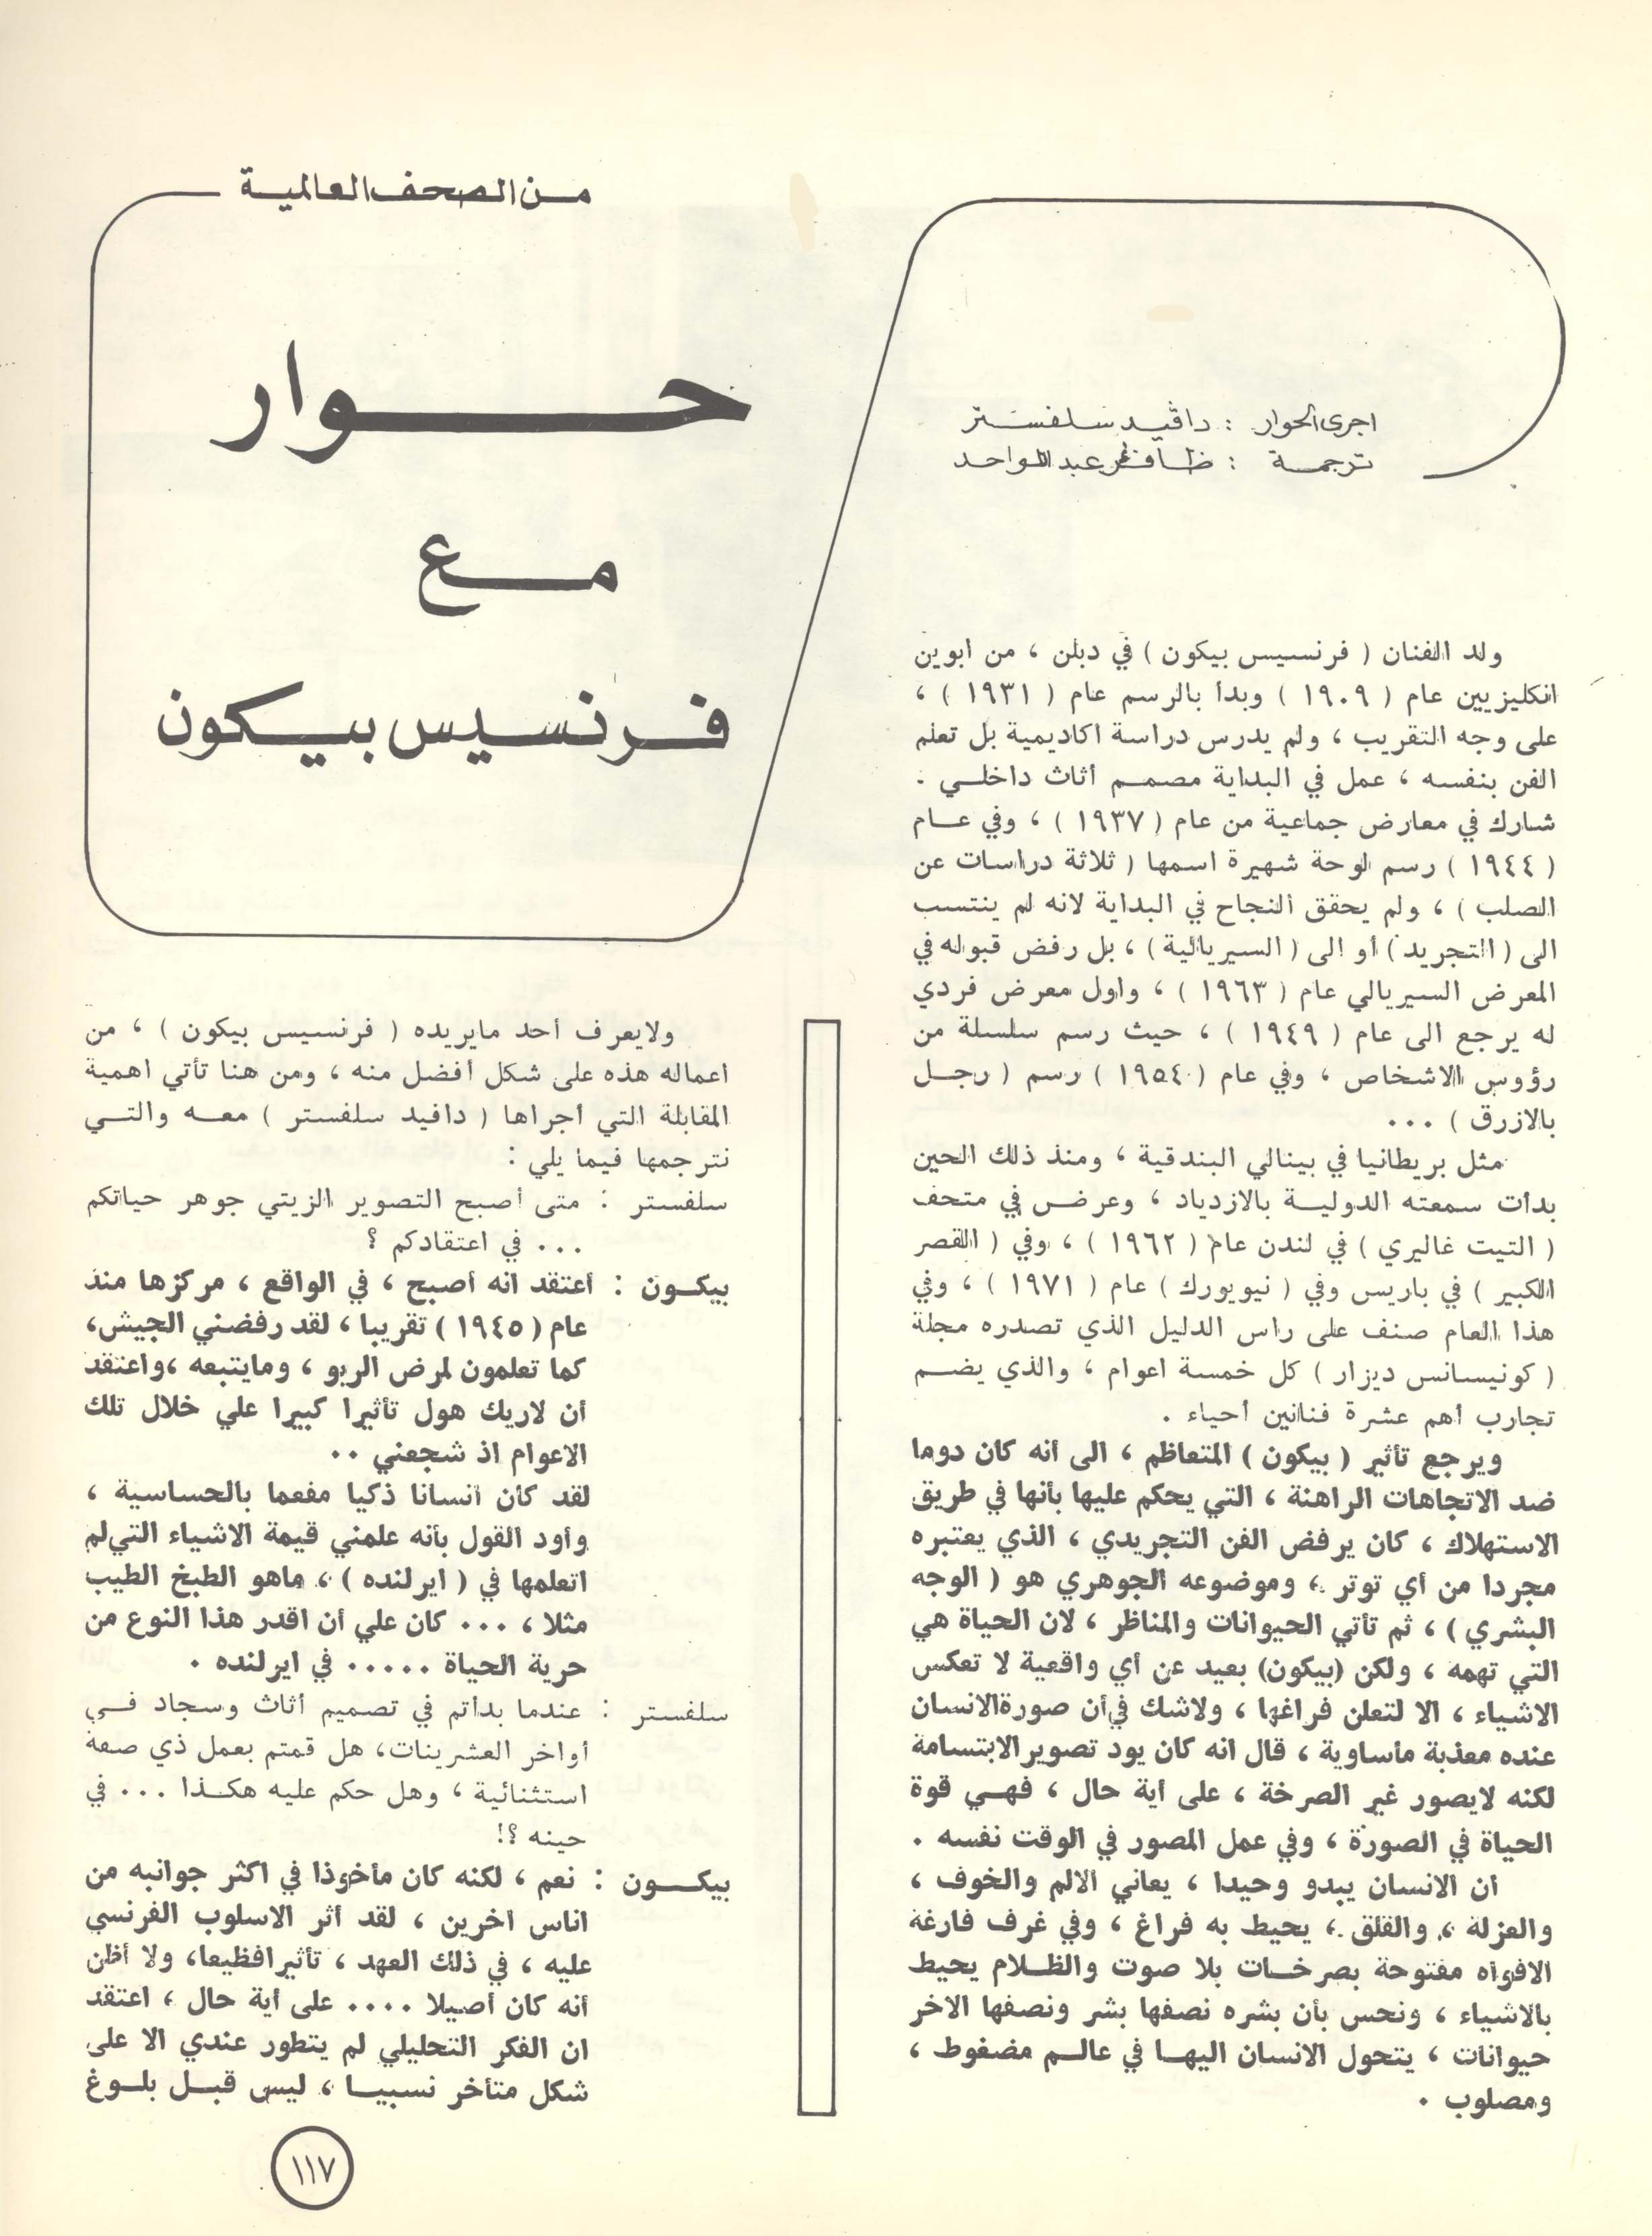 من الصحف العالمية
حوار
مع
فرنسيس بيكون
اجرى الحوار : داڤيد سلفستر
ترجمة : ظافر عبد الواحد
ولد الفنان ( فرنسيس بيكون ) في دبلن ، من ابوين
انكليزيين عام ( ١٩٠٩ ) وبدأ بالرسم عام ( ١٩٣١ ) ،
على وجه التقريب ، ولم يدرس دراسة اكاديمية بل تعلم
الفن بنفسه ، عمل في البداية مصمم أثاث داخلي .
شارك في معارض جماعية من عام ( ١٩٣٧ ) ، وفي عام
( ١٩٤٤ ) رسم لوحة شهيرة اسمها ( ثلاثة دراسات عن
الصلب ) ، ولم يحقق النجاح في البداية لانه لم ينتسب
الى ( التجريد ) أو الى ( السيريالية ) ، بل رفض قبوله في
المعرض السيريالي عام ( ١٩٦٣ ) ، واول معرض فردي
له يرجع الى عام ( ١٩٤٩ ) ، حيث رسم سلسلة من
رؤوس الاشخاص ، وفي عام ( ١٩٥٤ ) رسم ( رجل
بالازرق ) ...
مثل بريطانيا في بينالي البندقية ، ومنذ ذلك الحين
بدأت سمعته الدولية بالازدياد ، وعرض في متحف
( التيت غاليري ) في لندن عام ( ١٩٦٢ ) ، وفي ( القصر
الكبير ) في باريس وفي ( نيويورك ) عام ( ١٩٧١ ) ، وفي
هذا العام صنف على راس الدليل الذي تصدره مجلة
( كونيسانس ديزار ) كل خمسة اعوام ، والذي يضم
تجارب أهم عشرة فنانين أحياء .
ويرجع تأثير ( بيكون ) المتعاظم ، الى أنه كان دوما
ضد الاتجاهات الراهنة ، التي يحكم عليها بأنها في طريق
الاستهلاك ، كان يرفض الفن التجريدي ، الذي يعتبره
مجردا من أي توتر ، وموضوعه الجوهري هو ( الوجه
البشري ) ، ثم تأتي الحيوانات والمناظر ، لان الحياة هي
التي تهمه ، ولكن (بيكون) بعيد عن أي واقعية لا تعكس
الاشياء ، الا لتعلن فراغها ، ولاشك في أن صورة الانسان
عنده معذبة مأساوية ، قال انه كان يود تصوير الابتسامة
لكنه لايصور غير الصرخة ، على أية حال ، فهي قوة
الحياة في الصورة ، وفي عمل المصور في الوقت نفسه .
أن الانسان يبدو وحيدا ، يعاني الالم والخوف ،
والعزلة ، والقلق ، يحيط به فراغ ، وفي غرف فارغة
الافواه مفتوحة بصرخات بلا صوت والظلام يحيط
بالاشياء ، ونحس بأن بشره نصفها بشر ونصفها الاخر
حيوانات ، يتحول الانسان اليها في عالم مضغوط ،
ومصلوب .
ولايعرف أحد مايريده ( فرنسيس بيكون ) ، من
اعماله هذه على شكل أفضل منه ، ومن هنا تأتي اهمية
المقابلة التي أجراها ( دافيد سلفستر ) معه والتي
نترجمها فيما يلي :
سلفستر : متى أصبح التصوير الزيتي جوهر حياتكم
... في اعتقادكم ؟
بيكون : أعتقد انه أصبح ، في الواقع ، مركزها منذ
عام ( ١٩٤٥ ) تقريبا ، لقد رفضني الجيش،
كما تعلمون لمرض الربو ، ومايتبعه ،واعتقد
أن لاريك هول تأثيرا كبيرا علي خلال تلك
الاعوام اذ شجعني ..
لقد كان أنسانا ذكيا مفعما بالحساسية ،
وأود القول بأنه علمني قيمة الاشياء التي لم
اتعلمها في ( ايرلنده ) ، ماهو الطبخ الطيب
مثلا ، ... كان علي أن اقدر هذا النوع من
حرية الحياة ..... في ايرلنده .
سلفستر : عندما بدأتم في تصميم أثاث وسجاد في
أواخر العشرينات، هل قمتم بعمل ذي صفة
استثنائية ، وهل حكم عليه هكذا ... في
حينه ؟!
بيكون : نعم ، لكنه كان مأخوذا في اكثر جوانبه من
اناس أخرين ، لقد أثر الاسلوب الفرنسي
عليه ، في ذلك العهد ، تأثيرا فظيعا، ولا أظن
أنه كان أصيلا .... على أية حال ، اعتقد
ان الفكر التحليلي لم يتطور عندي الا على
شكل متأخر نسبيا ، ليس قبل بلوغ
١١٧